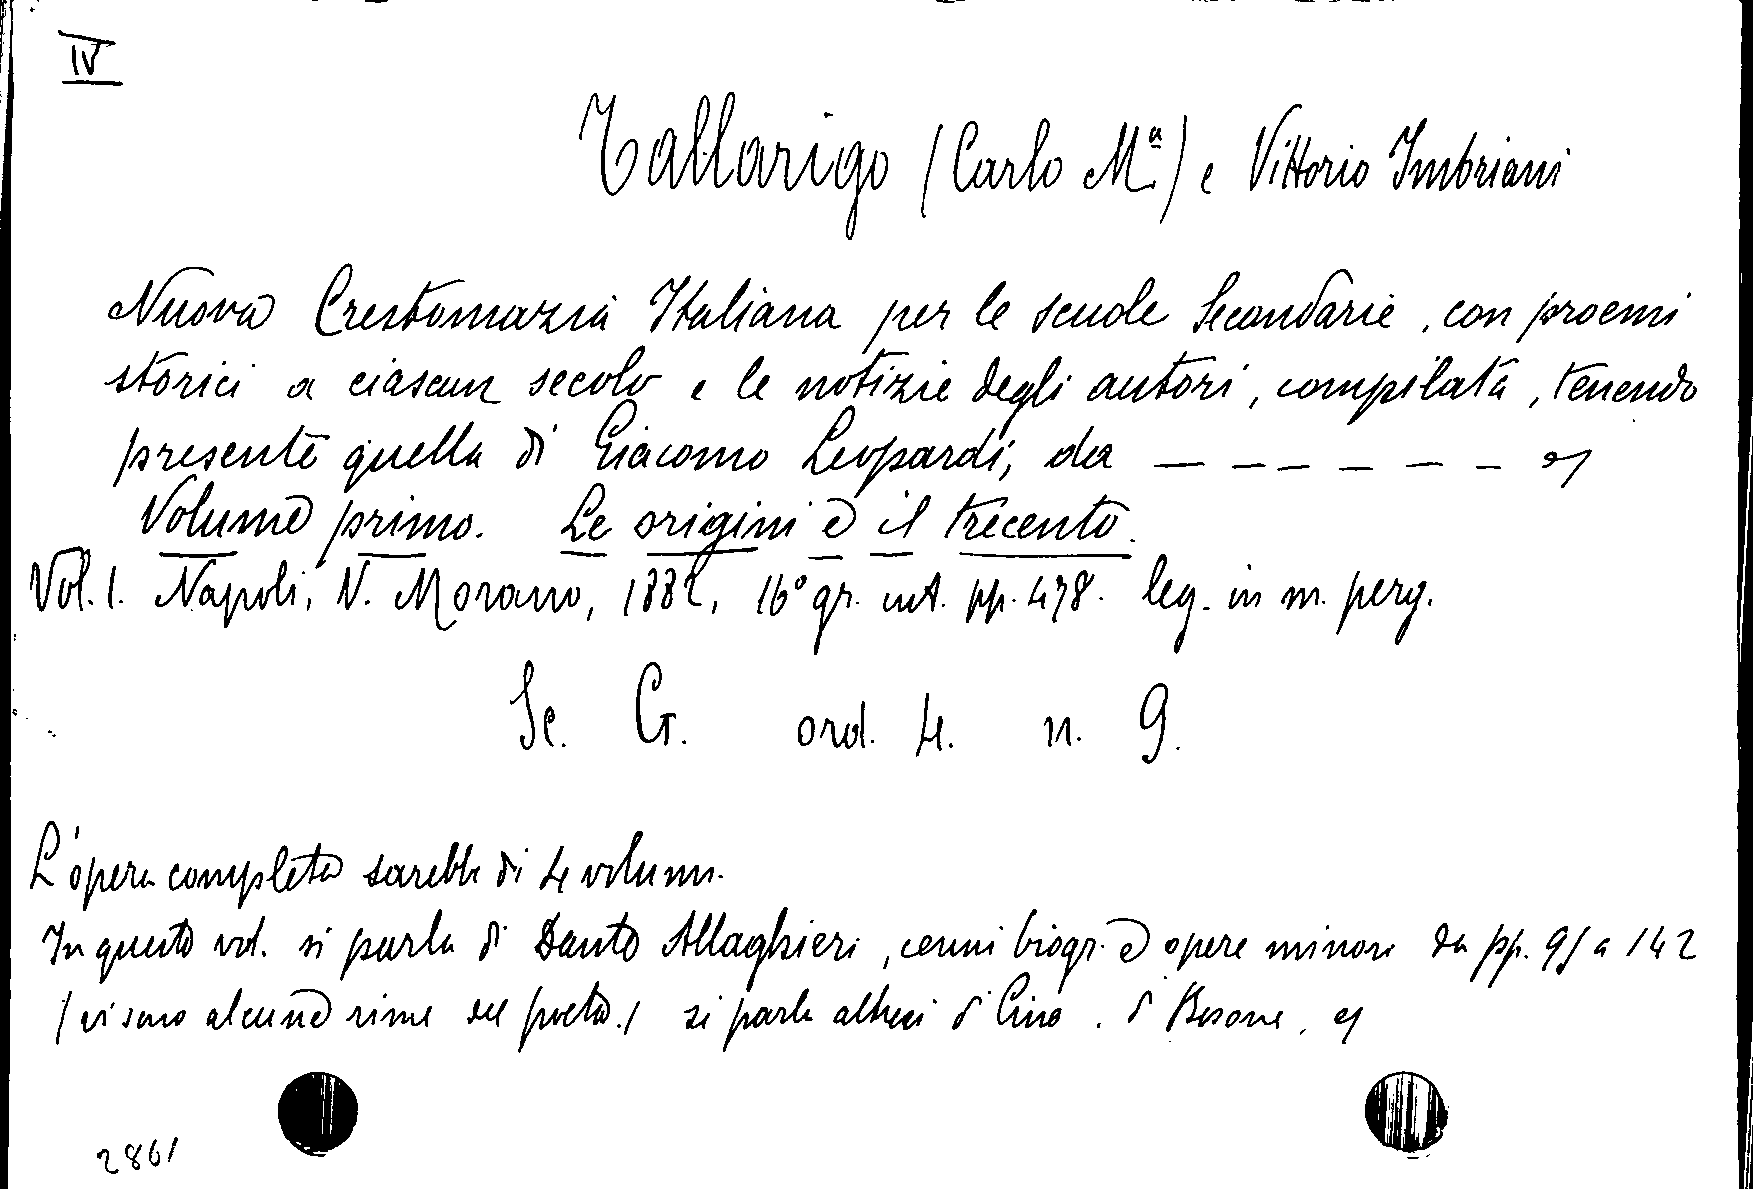 IV
Tallarigo (Carlo Mª.) e Vittorio Imbriani
Nuova Crestomazia Italiana per le scuole Secondarie, con proemi
storici a ciascun secolo e le notizie degli autori, compilata, tenendo
presente quella di Giacomo Leopardi, da _ _ _ _ _ _ _
Volume primo. Le origini e il trecento.
Vol. I. Napoli, N. Morano, 1882, 16° gr. int. pp. 478. leg. in m. perg.
Sc. G. ord. 4. n. 9.
L'opera completa sarebbe di 4 volumi.
In questo vol. si parla di Dante Allaghieri, cenni biogr. e opere minori da pp. 95 a 142
(vi sono alcune rime del poeta.) si parla altresì di Cino, di Bosone,
2861